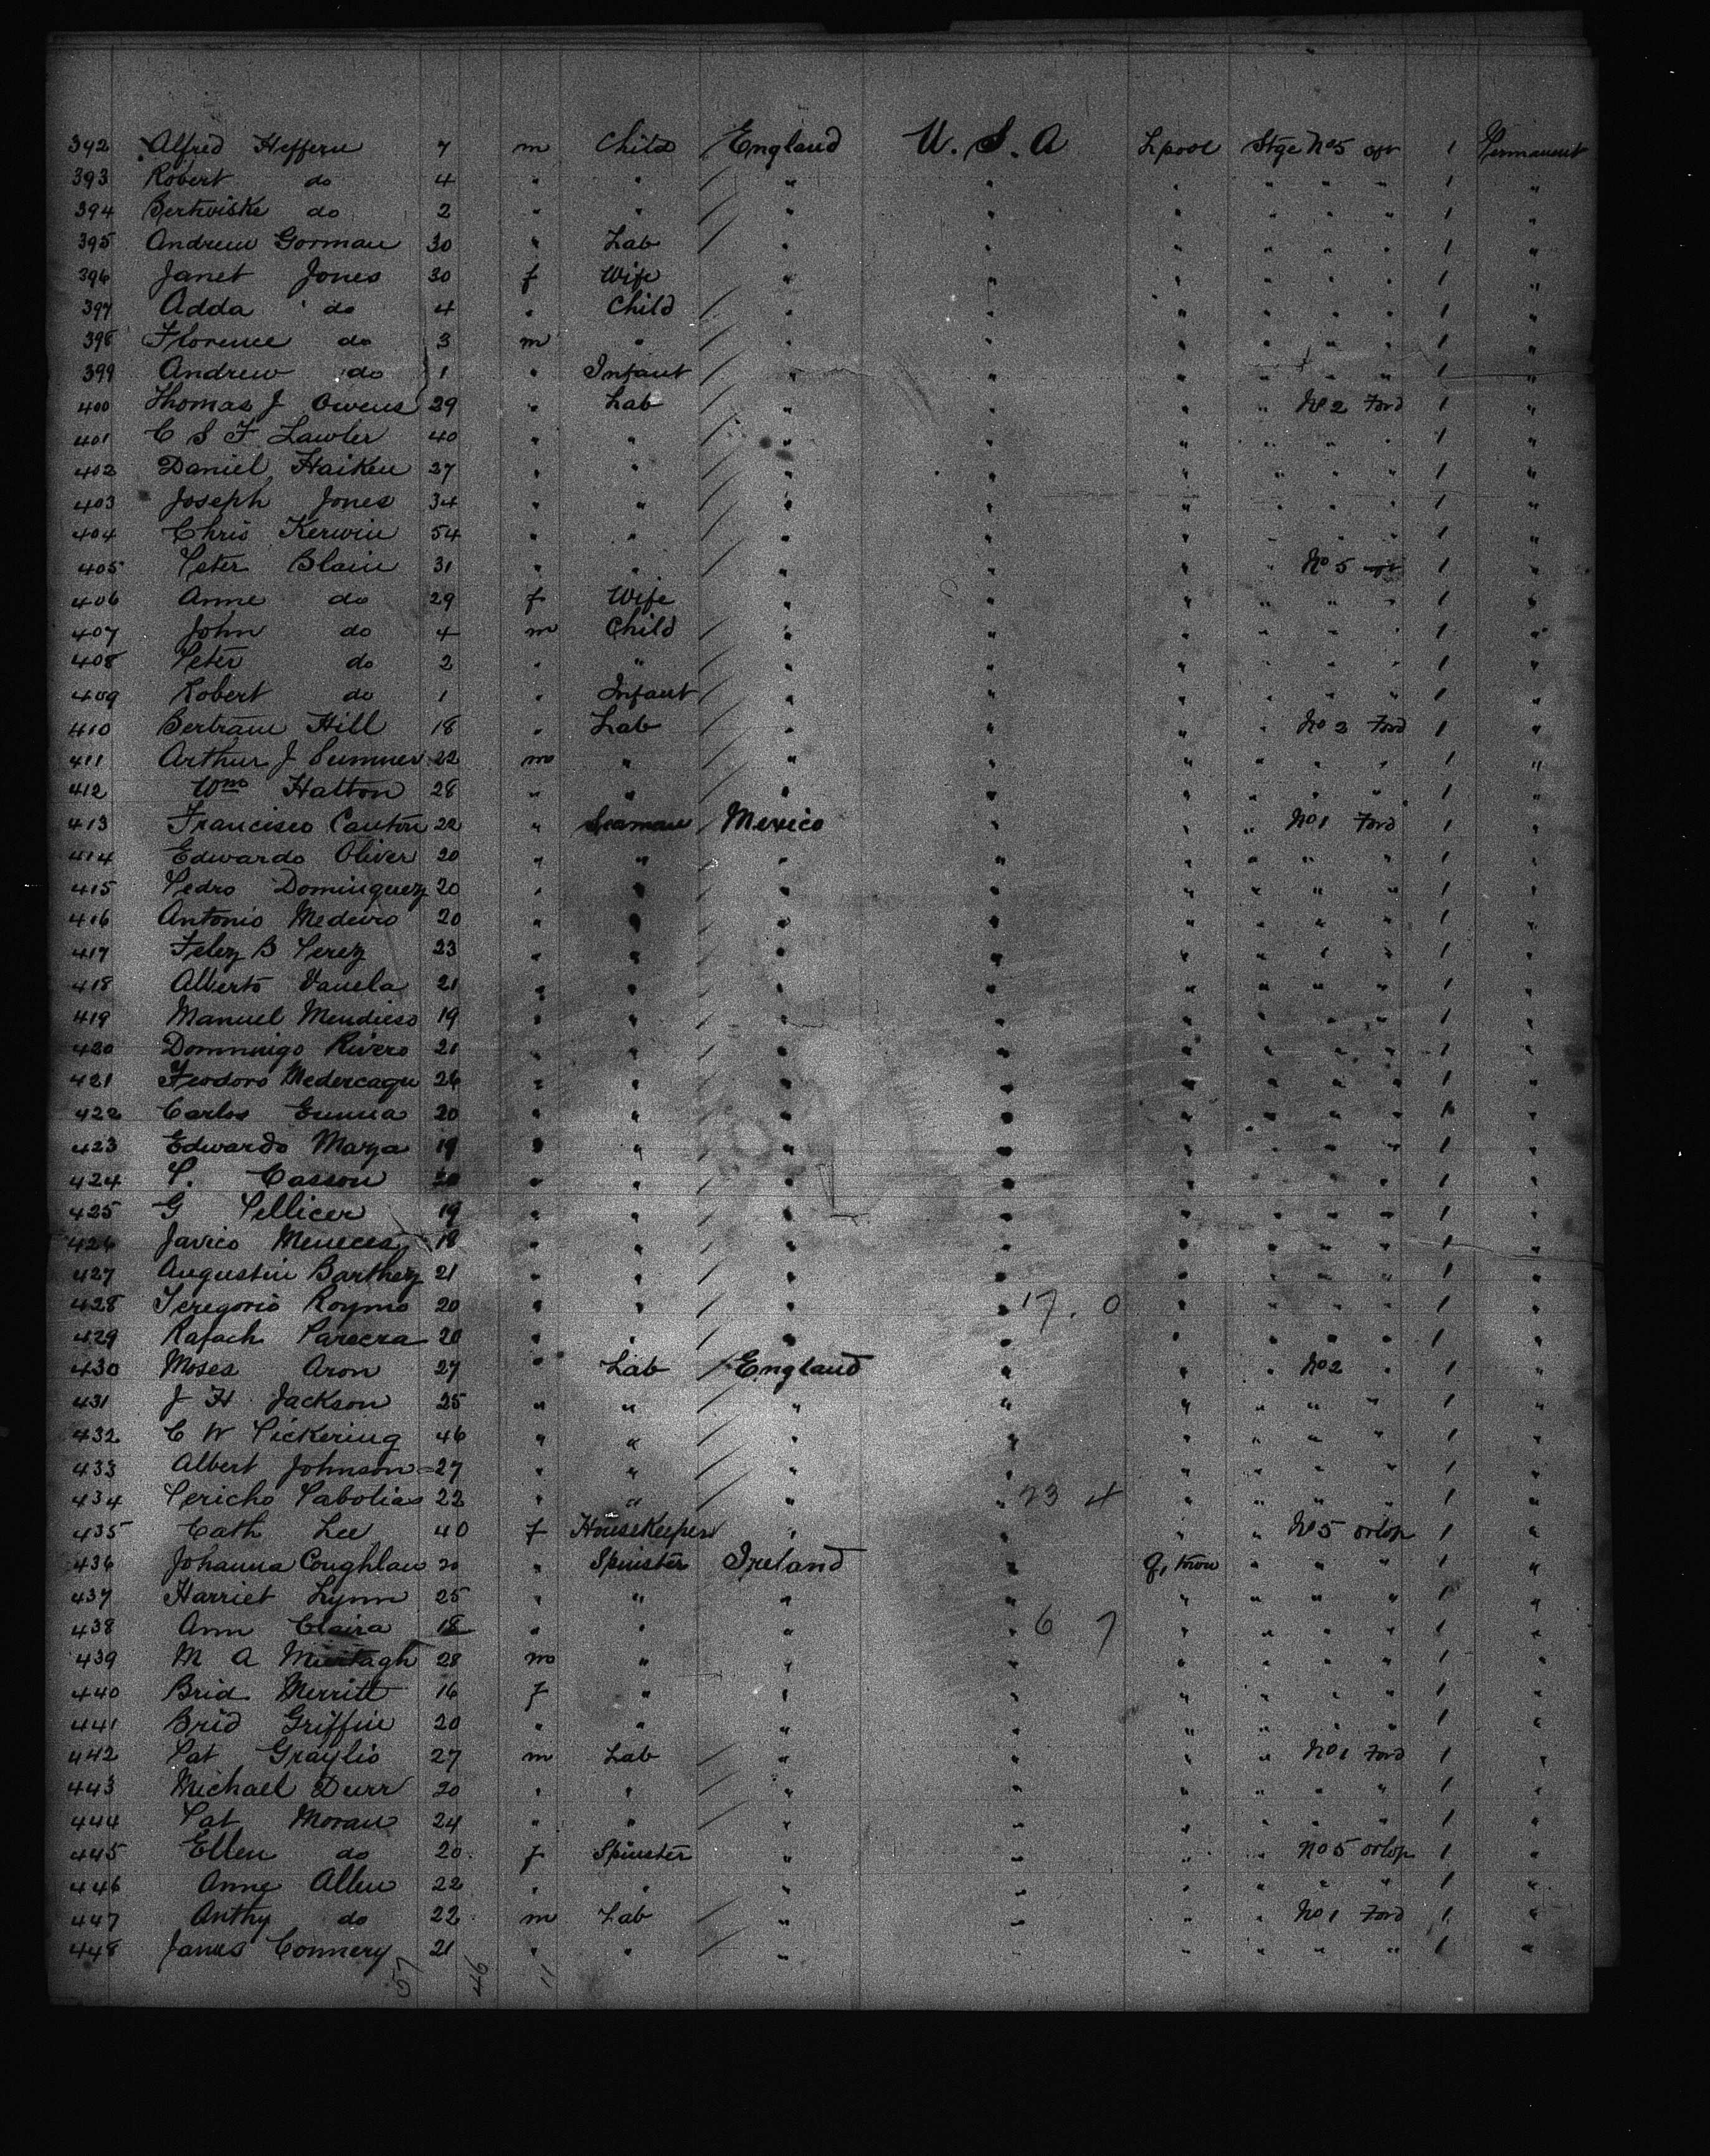 392 Alfred Heffern 7 m Child England U. S. A Lpool Stge No 5 aft 1 Permanent
393 Robert do 4 " " " " " " " " " 1 "
394 do 2 " " " " " " " " 1 "
395 Andrew Gorman 30 " Lab " " " " " " 1 "
396 Janet Jones 30 f Wife " " " " " " 1 "
397 Adda do 4 " Child " " " " " " 1 "
398 Florence do 3 m " " " " " " " 1 "
399 Andrew do 1 " Infant " " " " " " 1 "
400 Thomas J Owens 29 " Lab " " " " No 2 Ford 1 "
401 C S F Lawler 40 " " " " " " " " 1 "
402 Daniel Haiken 27 " " " " " " " " 1 "
403 Joseph Jones 34 " " " " " " " " 1 "
404 Chris Kerwin 54 " " " " " " " " 1 "
405 Peter Blain 31 " " " " " " No 5 aft 1 "
406 Anne do 29 f Wife " " " " " " 1 "
407 John do 4 m Child " " " " " " 1 "
408 Peter do 2 " " " " " " " " 1 "
409 Robert do 1 " Infant " " " " " " 1 "
410 Bertram Hill 18 " Lab " " " " No 2 Ford 1 "
411 Arthur J Sumner 22 m " " " " " " " 1 "
412 Wm Hatton 28 " " " " " " " " 1 "
413 Francisco Canton 22 " Seaman Mexico " " " No 1 Ford 1 "
414 Edwardo Oliver 20 " " " " " " " " 1 "
415 Pedro Dominguez 20 " " " " " " " " 1 "
416 Antonio Medeiro 20 " " " " " " " " 1 "
417 Felez B Perez 23 " " " " " " " " 1 "
418 Alberto Vanela 21 " " " " " " " " 1 "
419 Manuel Mendieso 19 " " " " " " " " 1 "
420 Dommigo Rivero 21 " " " " " " " " 1 "
421 Feodoro Medercagu 26 " " " " " " " " 1 "
422 Carlos 20 " " " " " " " " 1 "
423 Edwardo Maza 19 " " " " " " " " 1 "
424 P. Casson 20 " " " " " " " " 1 "
425 G Pellicer 19 " " " " " " " " 1 "
426 Javico Meneces 18 " " " " " " " " 1 "
427 Augustin Barthez 21 " " " " " " " " 1 "
428 Roymo 20 " " " " 17. 0 " " " " 1 "
429 Rafach Parcera 20 " " " " " " " " 1 "
430 Moses Aron 27 " Lab England " " " No 2 " 1 "
431 J H Jackson 25 " " " " " " " " 1 "
432 C W Pickering 46 " " " " " " " " 1 "
433 Albert Johnson 27 " " " " " " " " 1 "
434 Pericho Pabolias 22 " " " " 23 4 " " " " 1 "
435 Cath Lee 40 f Housekeeper " " " " No 5 orlop 1 "
436 Johanna Coughlan 20 " Spinster Ireland " Q, town " " " 1 "
437 Harriet Lynn 25 " " " " " " " " 1 "
438 Ann Claira 18 " " " " 6 7 " " " " 1 "
439 M A Murtagh 28 m " " " " " " " 1 "
440 Brid Merritt 16 f " " " " " " " 1 "
441 Brid Griffin 20 " " " " " " " " 1 "
442 Pat Graylis 27 m Lab " " " " No 1 Ford 1 "
443 Michael Durr 20 " " " " " " " " 1 "
444 Pat Moran 24 " " " " " " " " 1 "
445 Ellen do 20 f Spinster " " " " No 5 orlop 1 "
446 Anne Allen 22 " " " " " " " " 1 "
447 Anthy do 22 m Lab " " " " No 1 Ford 1 "
448 James Connery 21 " " " " " " " " 1 "
57 46 11